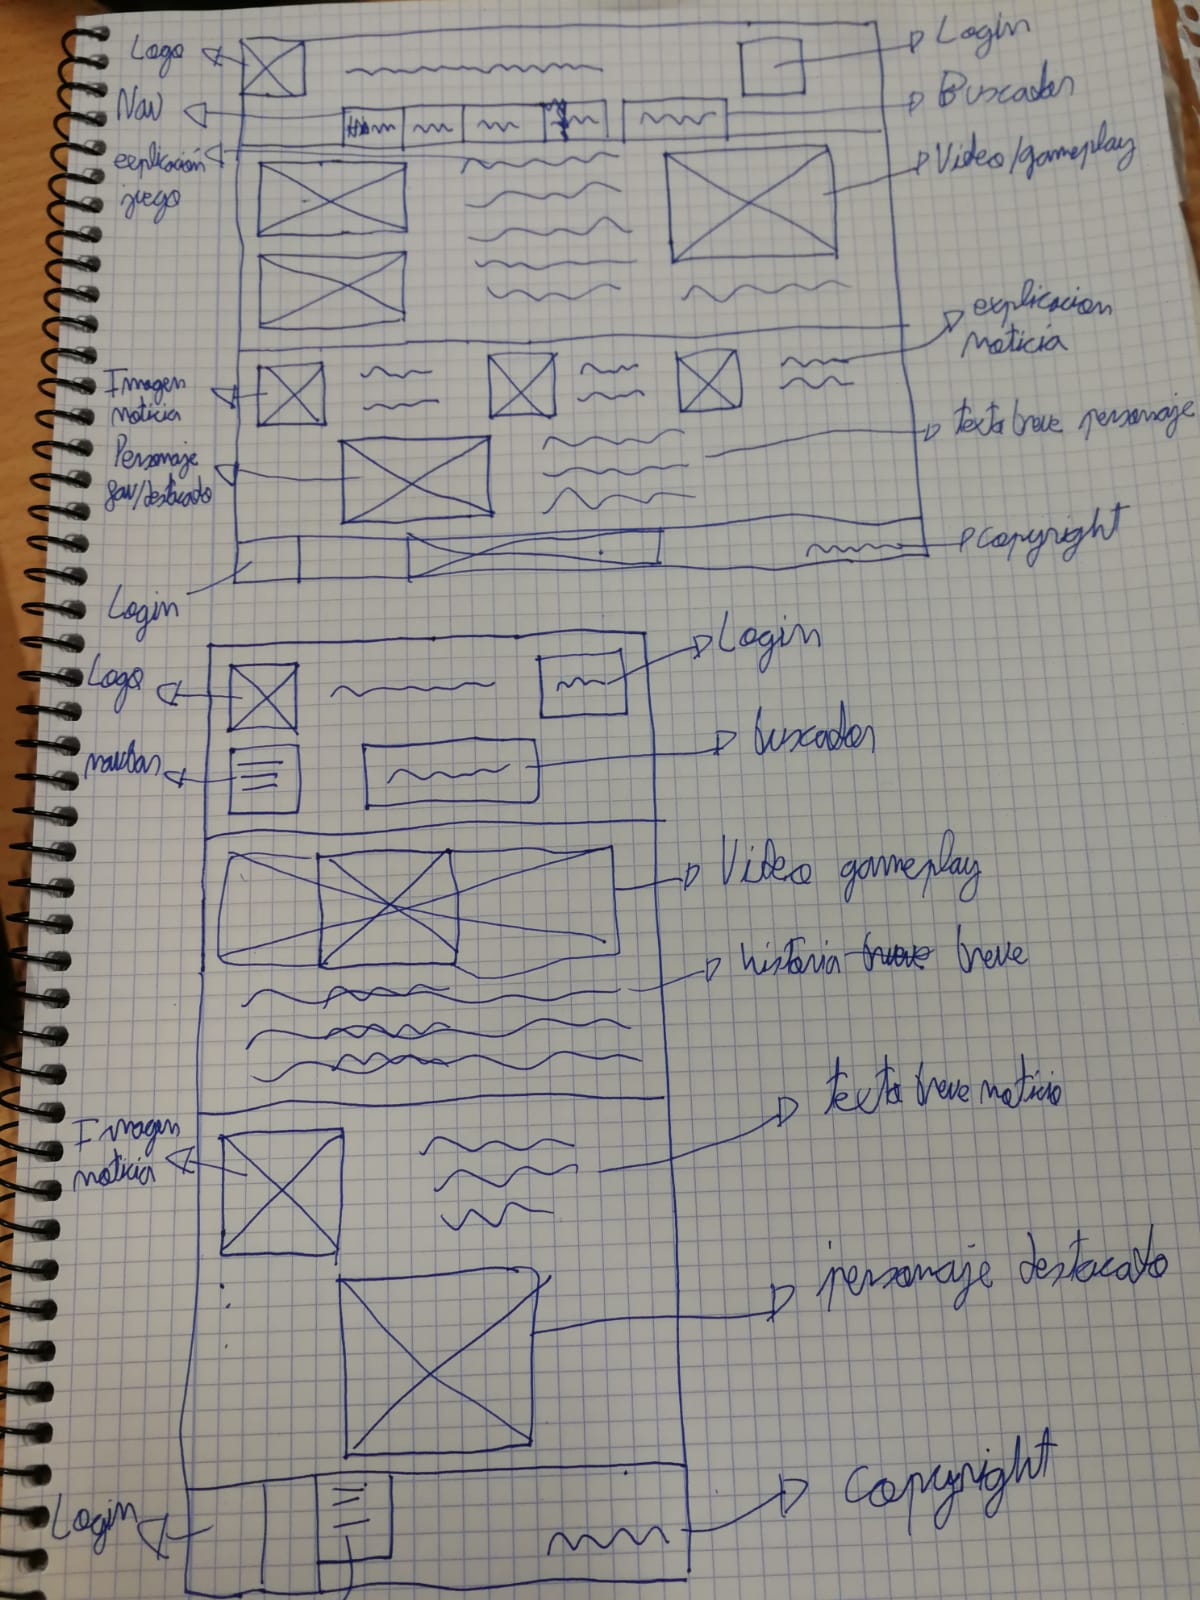 Logo
Login
Nav
Buscador
explicación
juego
Video/gameplay
explicacion
noticia
Imagen
noticia
texto breve personaje
Personaje
fav/destacado
Copyright
Login
Logo
Login
navbar
buscador
Video gameplay
historia breve breve
texto breve noticia
Imagen
noticia
personaje destacado
Login
Copyright